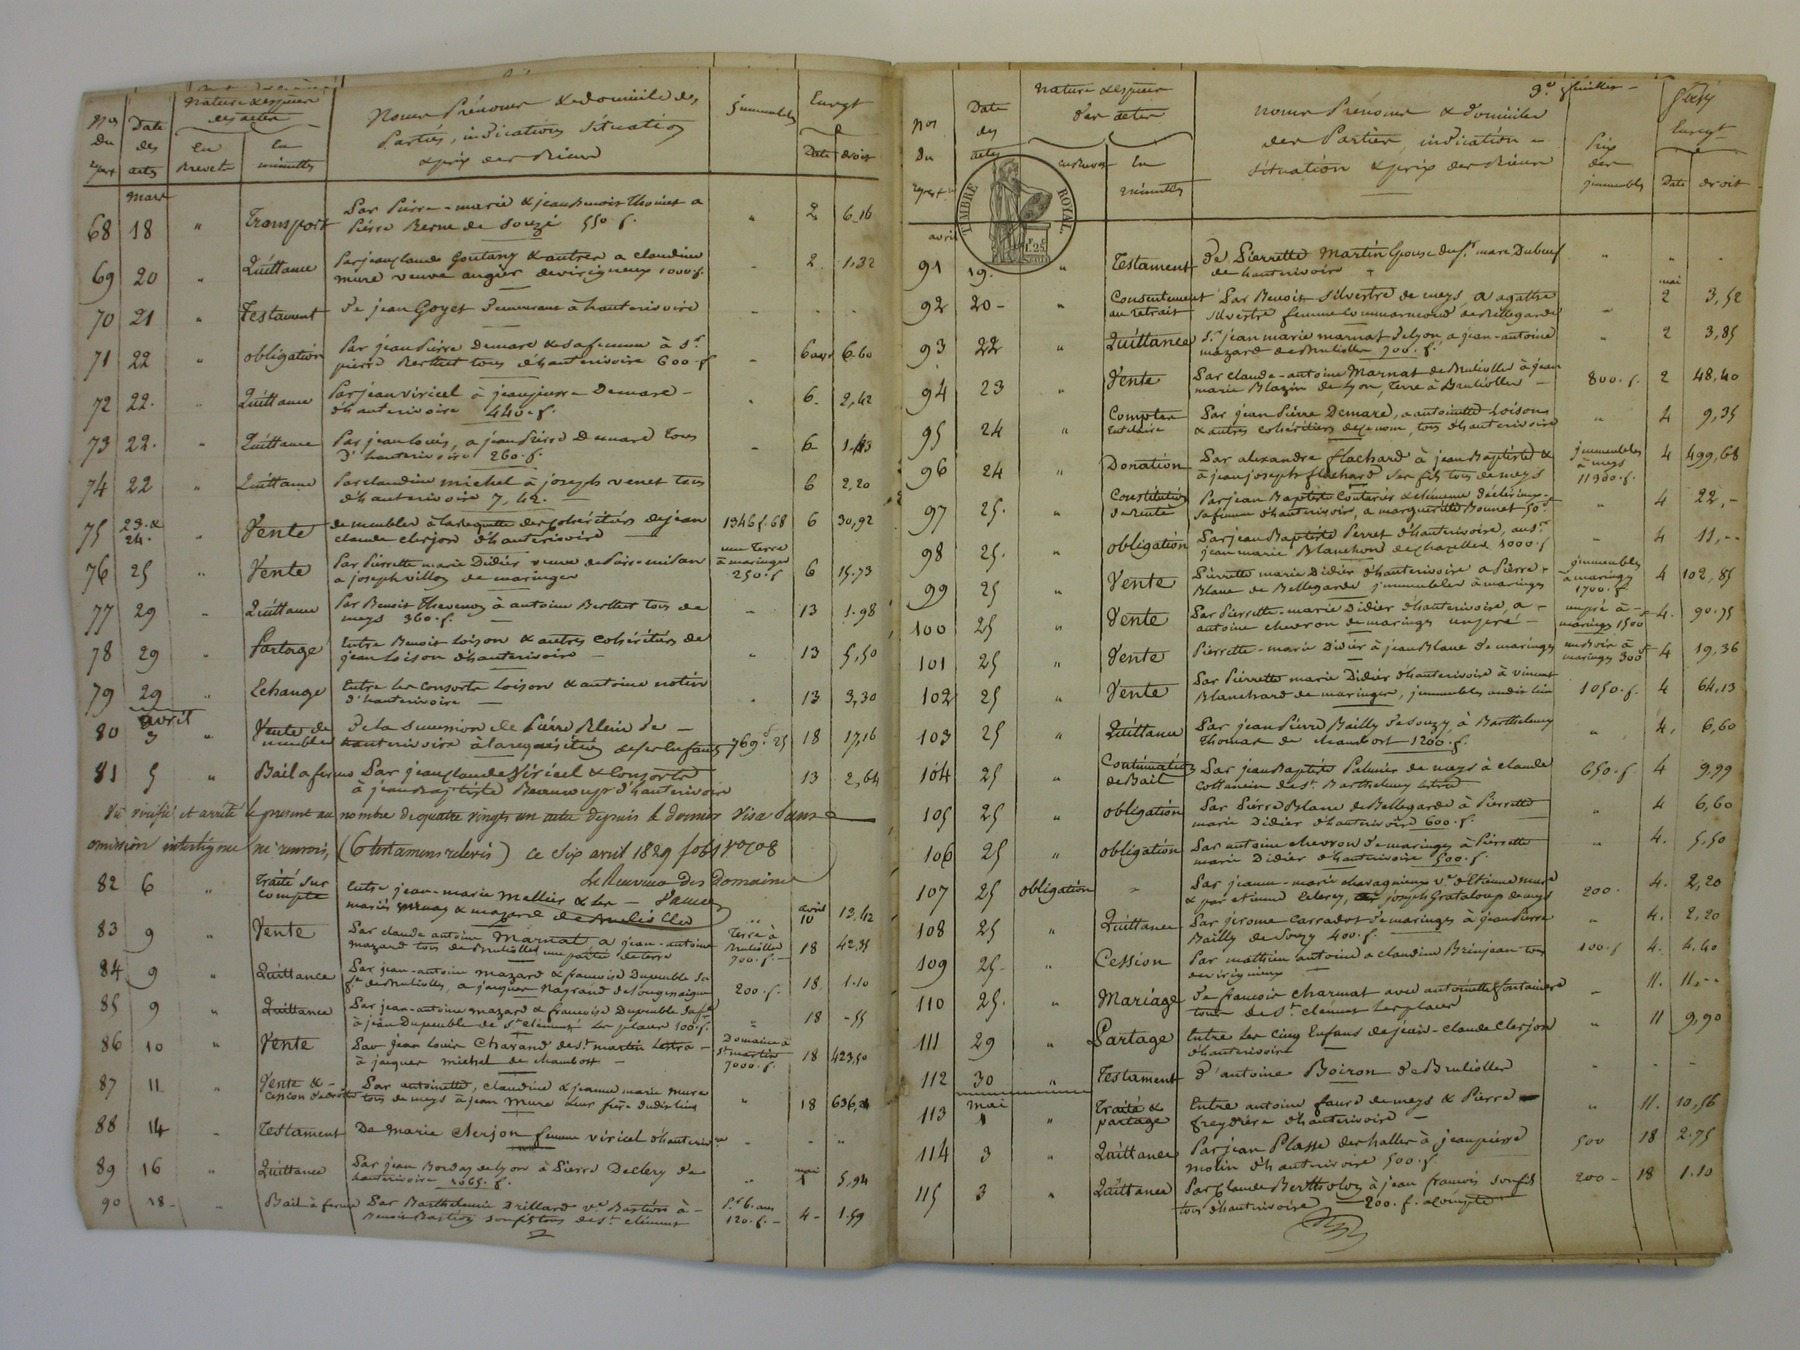 Nos du Repert
Date des actes
nature & espèces des actes
En Brevets
En minuttes
Noms Prénoms & domicile des
Parties, indications Situation
& prix des Biens
Immeubles
Enregt
Date droits
mars
68 18 " Transport Par Pierre-marie & jean Benoit Thoinet a 2 6-16
Pierre Berne de Souzi 550 f.
69 20 " Quittance Par jean claude Goutany & autres a claudine 2 1,32
mure veuve augier de virigneux 1000 f.
70 21 " Testament de jean Goyet demeurant à hauterivoire
71 22 " obligation Par jean Pierre demare & sa femme à Sr 6 avr 6-60
pierre Berthet tous d'hauterivoire 600 f
72 22 " Quittance Par jean viricel à jean pierre Demare 6 2,42
d'hauterivoire 440 f.
73 22 " Quittance Par jean Louis, a jean Pierre Demare tous 6 1,43
d'hauterivoire 260 f.
74 22 " Quittance Par claudine michel à joseph venet tous 6 2,20
d'hauterivoire 7,42
75 23 & 24 " Vente de meubles à la requette des cohéritiers de jean 1346 f. 68 6 30,92
claude clerjon d'hauterivoire
76 25 " Vente Par Pierrette marie Didier veuve de Pierre milan une Terre à maringes 250 f 6 15-73
a joseph villoy de maringes
77 29 " Quittance Par Benoit Thevenon à antoine Berthet tous de 13 1-98
meys 360 f.
78 29 " Partage Entre Benoit Loison & autres cohéritiers de 13 5,50
jean Loison d'hauterivoire
79 29 " Echange Entre les consorts Loison & antoine notin 13 3,30
d'hauterivoire
avril
80 3 " Vente de meubles de la succession de Pierre Blein de 769 f 25 18 17,16
hauterivoire à la requisition de ses Enfants
81 5 " Bail a ferme Par jean claude Viricel & Consorts 13 2,64
à jean Baptiste Beaucoup d'hauterivoire
Vu vérifié et arrêté le present au nombre de quatre vingts un acte depuis le dernier visa sans
omission interligne ni renvois, (6 testamens relevés) ce six avril 1829
Le Receveur des Domaines
82 6 " Traité sur compte Entre jean-marie Mellier & les avril 10 13,42
83 9 " Vente Par claude antoine Marnat a jean-antoine Terre à Brulioles 700 f. 18 42,35
mazard tous de Brulioles une partie de terre
84 9 " Quittance Par jean-antoine mazard & francoise Dupeuble sa 200 f. 18 1-10
fe de Brulioles, a jacques
85 9 " Quittance Par jean-antoine mazard & francoise Dupeuble sa fe 18 -55
à jean Dupeuble de St clément les places 100 f.
86 10 " Vente Par jean Louis Chavand de St martin Lestra Domaine à St martin 7000 f. 18 423,50
à jacques michel de chambost
87 11 " Vente & cession de droits Par antoinette, claudine & jeanne marie mure " 18 636,
tous de meys à jean mure leur frère dudit lieu
88 14 " Testament De marie Clerjon femme viricel d'hauterivoire
89 16 " Quittance Par jean Borday de lyon à Pierre Declery de mai 1 5,94
hauterivoire 1065 f.
90 18 " Bail à ferme Par Barthelemie Drillard ve Bastion à Pr 6 ans 120 f. 4 1-59
Benoit Bastion son fils tous de St clément
Nos du Repert
Date des actes
nature & espèces des actes
en Brevet
En minuttes
noms Prénoms & domiciles
des Parties, indication
situation & prix des Biens
Prix des immeubles
Enregt
Date droits
TIMBRE ROYAL
1F. 25C
avril
91 19 " Testament de Pierrette Martin Epouse du Sr marc Dubeuf
de hauterivoire
92 20 " Consentement au retrait Par Benoit Silvestre de meys, a agathe mai 2 3,52
Silvestre femme de Bellegarde
93 22 " Quittance Sr jean marie marnat de lyon, a jean-antoine 2 3,85
mazard de Brulioles 700 f.
94 23 " Vente Par claude-antoine Marnat de Brulioles à jean 800 f. 2 48,40
marie Blazin de lyon, terre à Brulioles
95 24 " Comptes tutelaire Par jean Pierre Demare, a antoinette Loison 4 9,35
& autres cohéritiers de ce nom, tous d'hauterivoire
96 24 " Donation Par alexandre flachard à jean Baptiste & immeubles à meys 11300 f. 4 499,68
à jean joseph flachard ses fils tous de meys
97 25 " Constitution de rente Par jean Baptiste Couturier & 4 22,-
sa femme d'hauterivoire, a marguerite Bonnet 50 f
98 25 " obligation Par jean Baptiste Perret d'hauterivoire, au Sr 4 11,--
jean marie Blanchon de chazelles 1000 f
99 25 " Vente Pierrette marie Didier d'hauterivoire a Pierre immeubles à maringes 1700 f 4 102,85
Blanc de Bellegarde immeubles à maringes
100 25 " Vente Par Pierrette-marie Didier d'hauterivoire, a un pré à maringes 1500 f 4 90-75
antoine chevron de maringes un pré
101 25 " Vente Pierrette-marie Didier à jean Blanc de maringes un Bois à maringes 300 f 4 19,36
102 25 " Vente Par Pierrette marie Didier d'hauterivoire à vincent 1050 f. 4 64,13
Blanchard de maringes, immeubles audit lieu
103 25 " Quittance Par jean Pierre Bailly de Souzy, à Barthelemy 4 6,60
Thomas de chambost 1200 f.
104 25 " Continuation de Bail Par jean Baptiste Palmier de meys à claude 650 f 4 9,99
Cottancin de St Barthelemy Lestra
105 25 " obligation Par Pierre Blanc de Bellegarde à Pierrette 4 6,60
marie Didier d'hauterivoire 600 f.
106 25 " obligation Par antoine chevron de maringes à Pierrette 4 5,50
marie Didier d'hauterivoire 500 f.
107 25 obligation " Par jeanne-marie chavagneux ve d'Etienne mure 200 4 2,20
& par etienne joseph Grataloup de meys
108 25 " Quittance Par jérome Carradot de maringes à jean Pierre 4 2,20
Bailly de Souzy 400 f.
109 25 " Cession Par mathieu antoine a claudine Brinjean tous 100 f 4 4,40
de virigneux
110 25 " Mariage de francois Charmat avec antoinette fontanière 11 11,--
tous de St clément les places
111 29 " Partage Entre les cinq Enfans de jean-claude Clerjon 11 9,90
d'hauterivoire
112 30 " Testament d'antoine Boiron de Brulioles
mai
113 1 " Traité & partage Entre antoine faure de meys & Pierre 11 10,56
freydière d'hauterivoire
114 3 " Quittance Par jean Plasse des halles à jean pierre 500 18 2-75
molin d'hauterivoire 500 f
115 3 " Quittance Par Claude Bertholon à jean francois son fils 200 18 1-10
tous d'hauterivoire 200 f. acompte